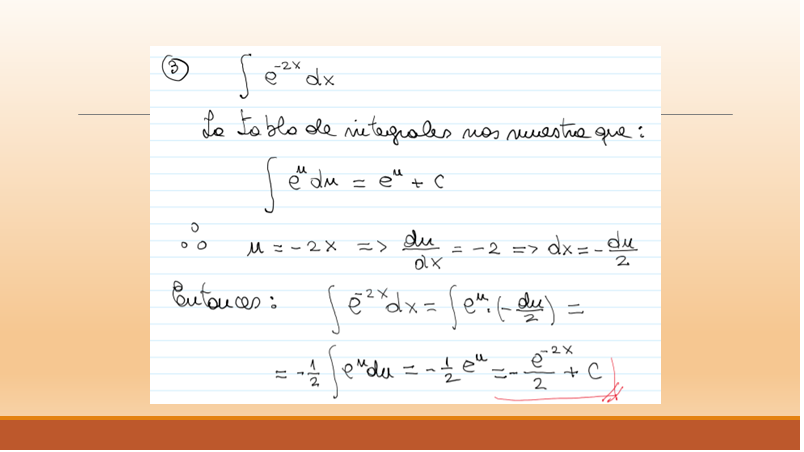 ③ ∫ e⁻²ˣ dx
La tabla de integrales nos muestra que:
∫ eᵘ du = eᵘ + C
∴ u = -2x => du/dx = -2 => dx = -du/2
Entonces: ∫ e⁻²ˣ dx = ∫ eᵘ · (-du/2) =
= -1/2 ∫ eᵘ du = -1/2 eᵘ = -e⁻²ˣ/2 + C